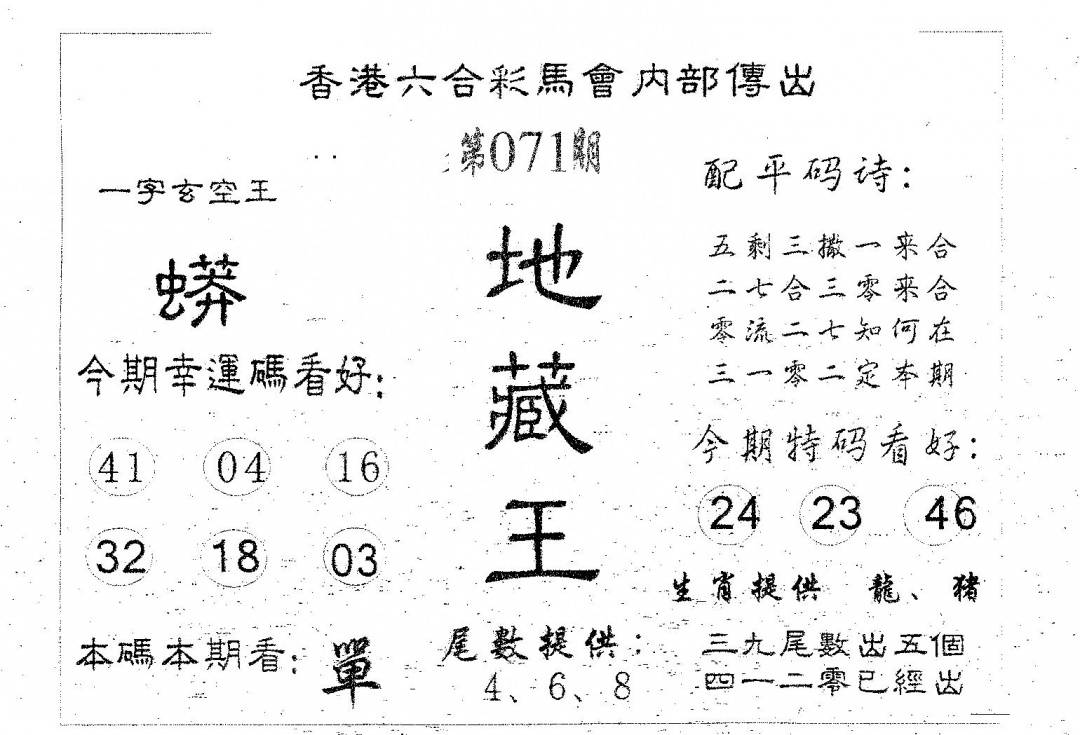 香港六合彩馬會内部傳出
第071期
一字玄空王
蟒
今期幸運碼看好:
41 04 16
32 18 03
本碼本期看: 單
地
藏
王
尾數提供:
4、6、8
配平码诗:
五剩三撒一来合
二七合三零来合
零流二七知何在
三一零二定本期
今期特码看好:
24 23 46
生肖提供 龍、猪
三九尾數出五個
四一二零已經出